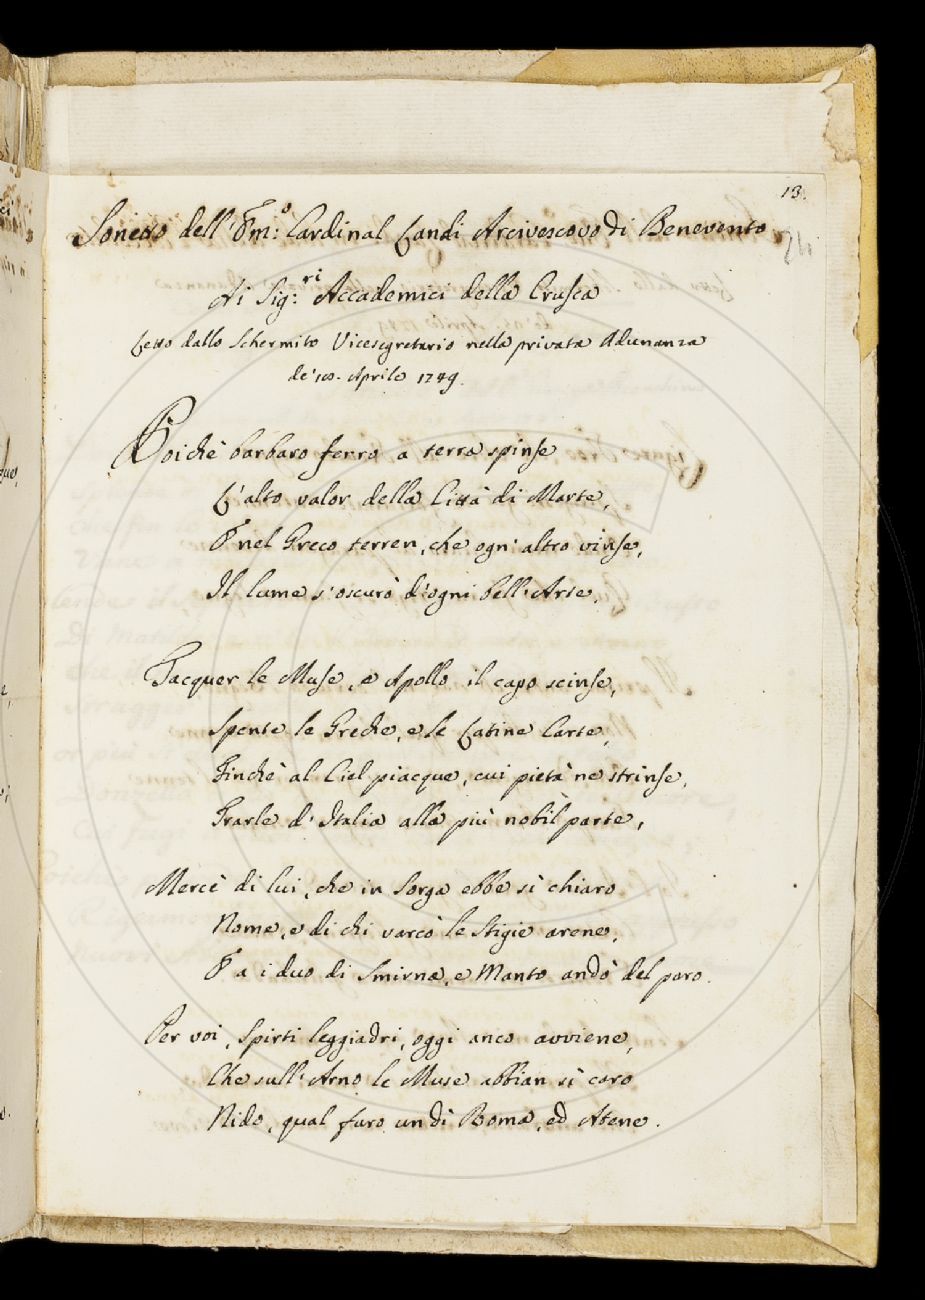 13.
24
Sonetto dell' Em:º Cardinal Landi Arcivescovo di Benevento
Ai Sig:ri Accademici della Crusca
Letto dallo Schermito Vicesegretario nella privata Adunanza
de' 10. Aprile 1749.
Poichè barbaro ferro a terra spinse
L'alto valor della Città di Marte,
E nel Greco terren, che ogn' altro vinse,
Il lume s'oscurò d'ogni bell'Arte,
Tacquer le Muse, e Apollo il capo scinse,
Spente le Greche, e le Latine Carte,
Finchè al Ciel piacque, cui pietà ne strinse,
Trarle d'Italia alla più nobil parte,
Mercè di lui, che in Sorga ebbe sì chiaro
Nome, e di chi varcò le Stigie arene,
E a i duo di Smirna, e Manto andò del paro.
Per voi, Spirti leggiadri, oggi anco avviene,
Che sull'Arno le Muse abbian sì caro
Nido, qual furo un dì Roma, ed Atene.